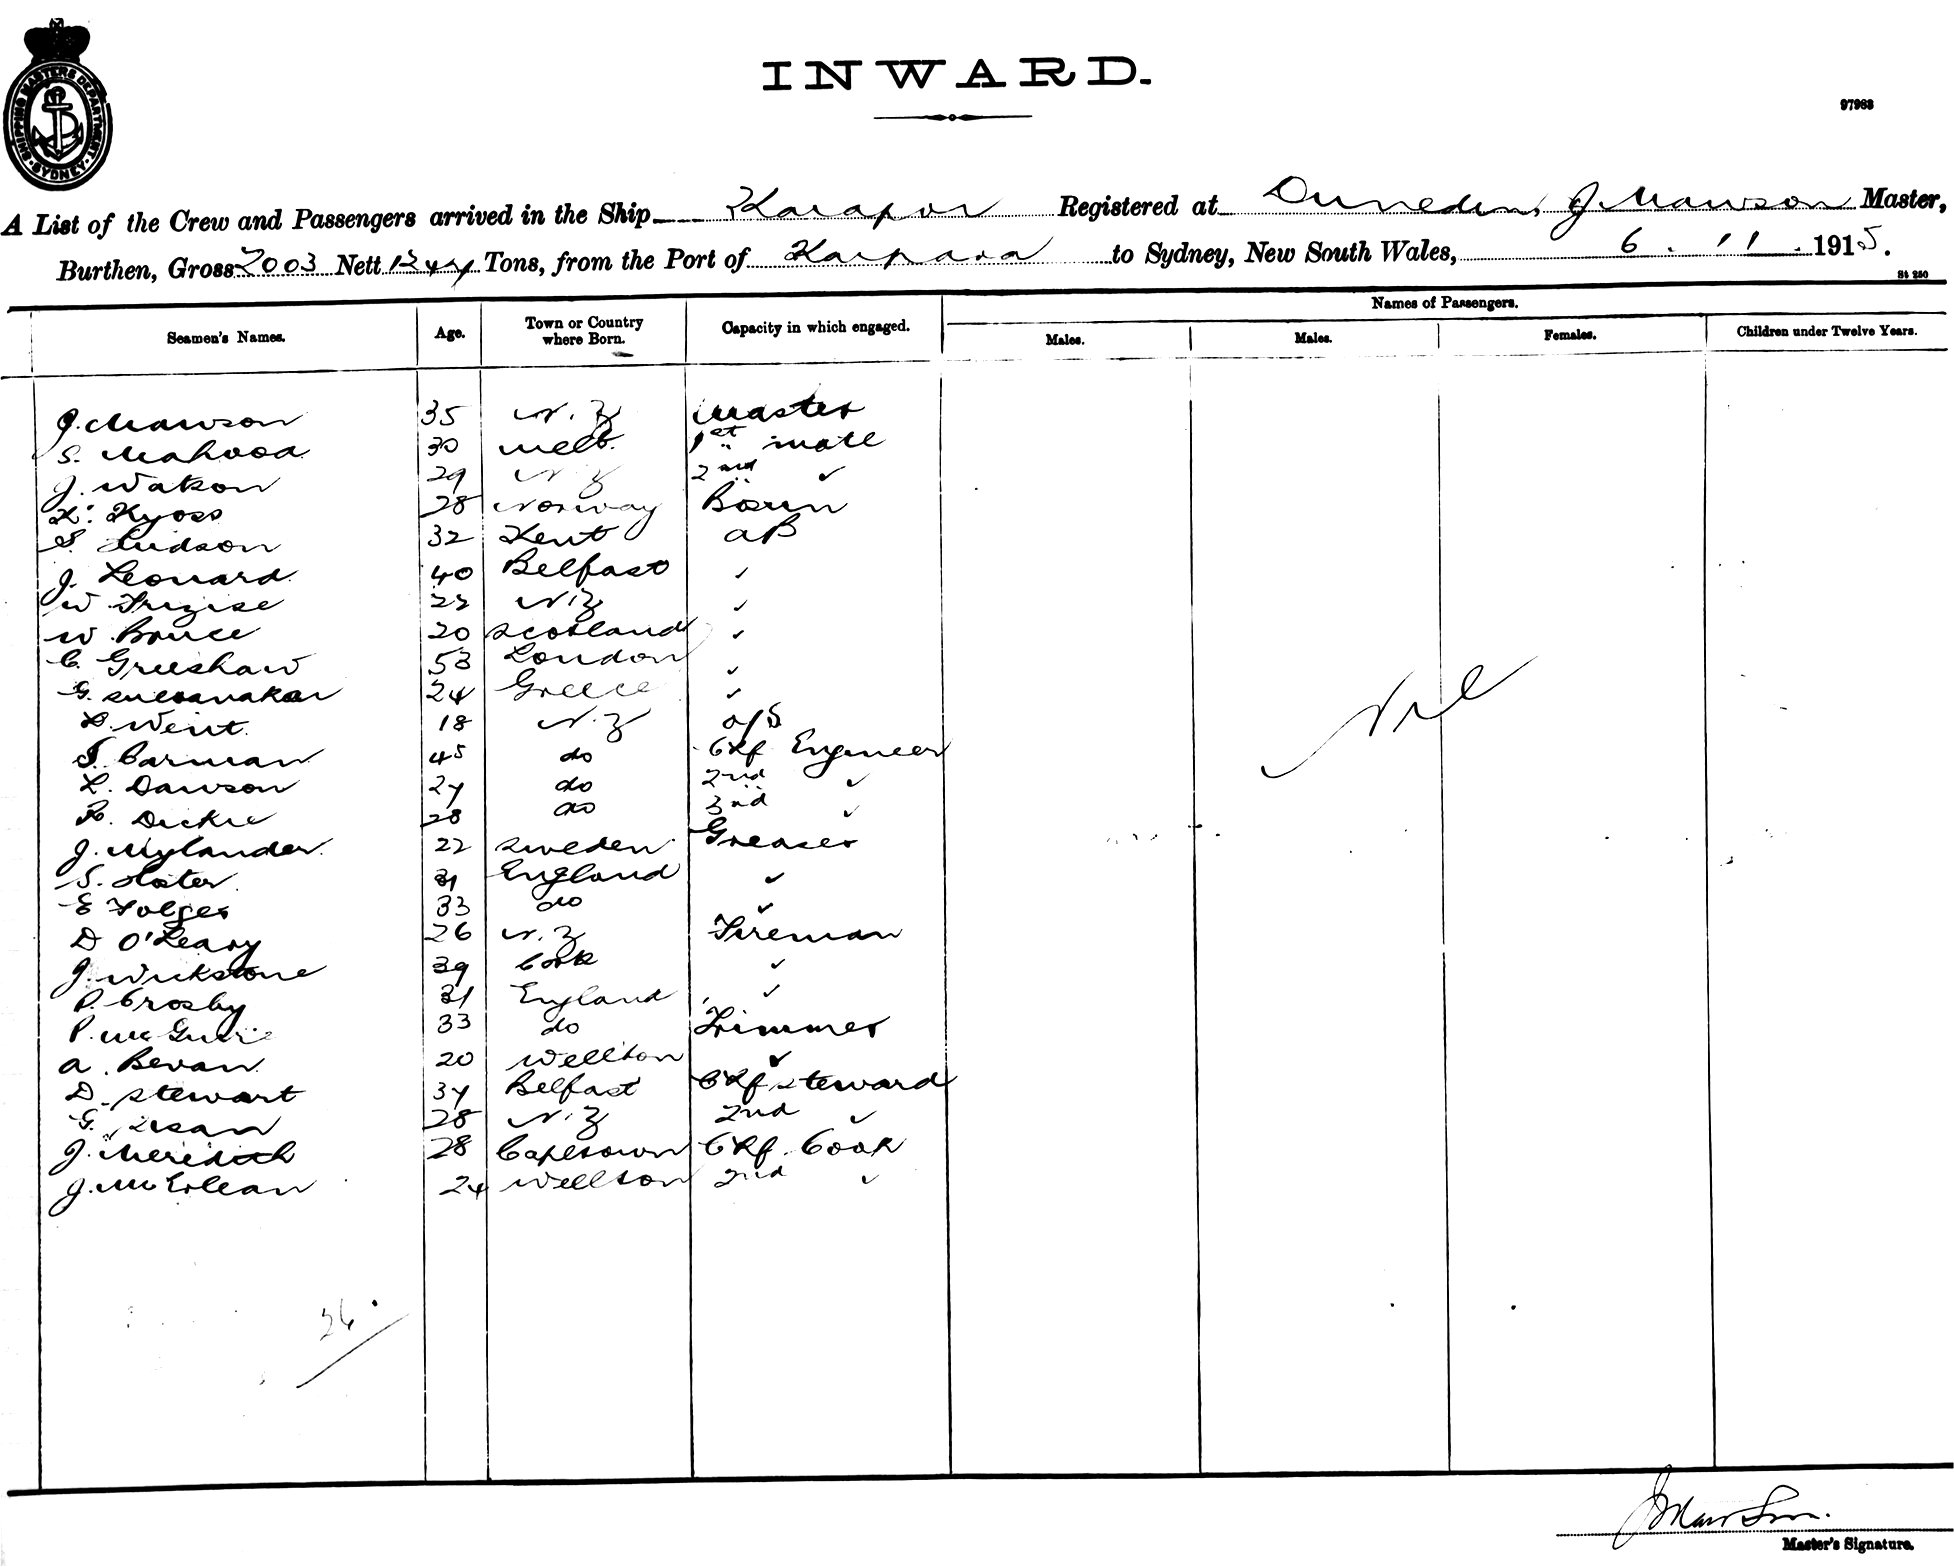 SHIPPING MASTERS DEPARTMENT SYDNEY
INWARD.
97963
A List of the Crew and Passengers arrived in the Ship Karapor Registered at Dunedin, J. Mawson Master,
Burthen, Gross 2003 Nett Tons, from the Port of Kaipara to Sydney, New South Wales, 6. 11. 1915.
St 250
Names of Passengers.
Seamen's Names. Age. Town or Country where Born. Capacity in which engaged. Males. Males. Females. Children under Twelve Years.
J. Mawson 35 N.Z Master
S. Mahood 30 Melb. 1st mate
J. Watson 29 N Z 2nd ✓
K. Kyoss 28 Norway Bosun
S. Judson 32 Kent AB
J. Leonard 40 Belfast ✓
W Trezise 22 N.Z ✓
W. Bruce 20 Scotland ✓
C. Greeshaw 53 London ✓
G. 24 Greece ✓
L. Went. 18 N.Z O/S
Nil
T. Carman 45 do Chf Engineer
L. Dawson 27 do 2nd ✓
R. Dickie 28 do 3rd ✓
J. Nylander. 22 Sweden Greaser
S. Slater. 31 England ✓
E Folger 33 do ✓
D O'Leary 26 N.Z Fireman
J. Wickstone 39 Cork ✓
P. Crosby 31 England ✓
P. McGuire 33 do Trimmer
A. Bevan 20 Wellton ✓
D. Stewart 37 Belfast Chf Steward
G. 28 N.Z 2nd ✓
J. Meredith 28 Capetown Chf. Cook
J. McErlean 24 Wellton 2nd ✓
26.
J Mawson.
Master's Signature.